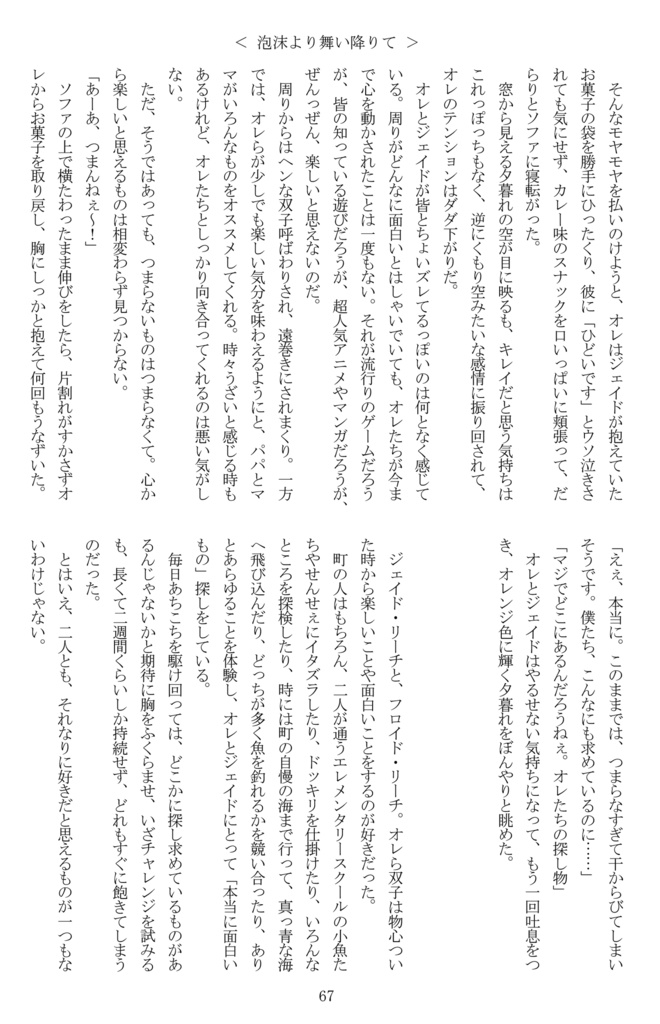 ＜ 泡沫より舞い降りて ＞
そんなモヤモヤを払いのけようと、オレはジェイドが抱えていた
お菓子の袋を勝手にひったくり、彼に「ひどいです」とウソ泣きさ
れても気にせず、カレー味のスナックを口いっぱいに頬張って、だ
らりとソファに寝転がった。
窓から見える夕暮れの空が目に映るも、キレイだと思う気持ちは
これっぽっちもなく、逆にくもり空みたいな感情に振り回されて、
オレのテンションはダダ下がりだ。
オレとジェイドが皆とちょいズレてるっぽいのは何となく感じて
いる。周りがどんなに面白いとはしゃいでいても、オレたちが今ま
で心を動かされたことは一度もない。それが流行りのゲームだろう
が、皆の知っている遊びだろうが、超人気アニメやマンガだろうが、
ぜんっぜん、楽しいと思えないのだ。
周りからはヘンな双子呼ばわりされ、遠巻きにされまくり。一方
では、オレらが少しでも楽しい気分を味わえるようにと、パパとマ
マがいろんなものをオススメしてくれる。時々うざいと感じる時も
あるけれど、オレたちとしっかり向き合ってくれるのは悪い気がし
ない。
ただ、そうではあっても、つまらないものはつまらなくて。心か
ら楽しいと思えるものは相変わらず見つからない。
「あーあ、つまんねぇ〜！」
ソファの上で横たわったまま伸びをしたら、片割れがすかさずオ
レからお菓子を取り戻し、胸にしっかと抱えて何回もうなずいた。
「えぇ、本当に。このままでは、つまらなすぎて干からびてしまい
そうです。僕たち、こんなにも求めているのに……」
「マジでどこにあるんだろうねぇ。オレたちの探し物」
オレとジェイドはやるせない気持ちになって、もう一回吐息をつ
き、オレンジ色に輝く夕暮れをぼんやりと眺めた。
ジェイド・リーチと、フロイド・リーチ。オレら双子は物心つい
た時から楽しいことや面白いことをするのが好きだった。
町の人はもちろん、二人が通うエレメンタリースクールの小魚た
ちやせんせぇにイタズラしたり、ドッキリを仕掛けたり、いろんな
ところを探検したり、時には町の自慢の海まで行って、真っ青な海
へ飛び込んだり、どっちが多く魚を釣れるかを競い合ったり、あり
とあらゆることを体験し、オレとジェイドにとって「本当に面白い
もの」探しをしている。
毎日あちこちを駆け回っては、どこかに探し求めているものがあ
るんじゃないかと期待に胸をふくらませ、いざチャレンジを試みる
も、長くて二週間くらいしか持続せず、どれもすぐに飽きてしまう
のだった。
とはいえ、二人とも、それなりに好きだと思えるものが一つもな
いわけじゃない。
67